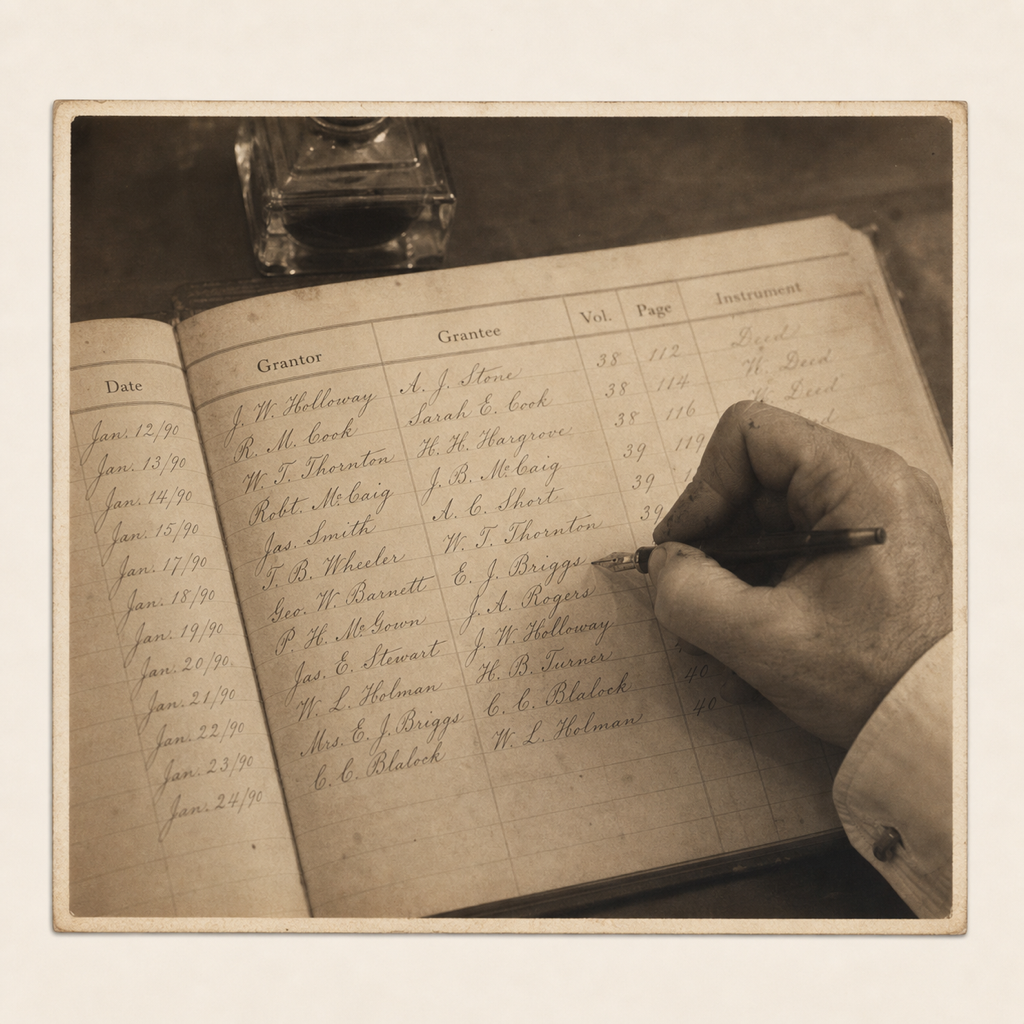 Date Grantor Grantee Vol. Page Instrument
Jan. 12/90 J. W. Holloway A. J. Stone 38 112 Deed
Jan. 13/90 R. M. Cook Sarah E. Cook 38 114 W. Deed
Jan. 14/90 W. T. Thornton H. H. Hargrove 38 116 W. Deed
Jan. 15/90 Robt. McCaig J. B. McCaig 39 119
Jan. 17/90 Jas. Smith A. C. Short 39
Jan. 18/90 T. B. Wheeler W. T. Thornton 39
Jan. 19/90 Geo. W. Barnett E. J. Briggs
Jan. 20/90 P. H. McGown J. A. Rogers
Jan. 21/90 Jas. E. Stewart J. W. Holloway
Jan. 22/90 W. L. Holman H. B. Turner
Jan. 23/90 Mrs. E. J. Briggs C. C. Blalock 40
Jan. 24/90 C. C. Blalock W. L. Holman 40